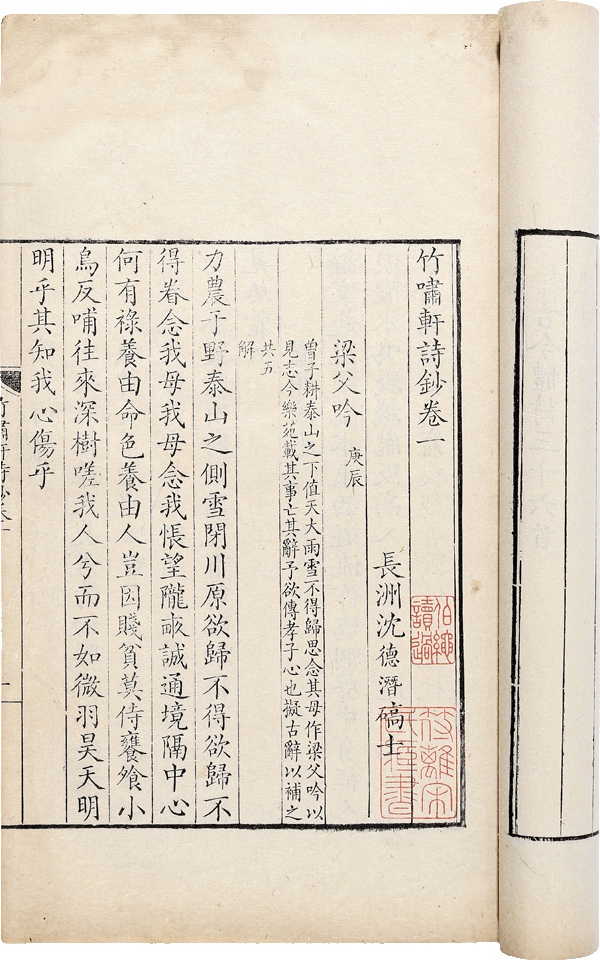 竹嘯軒詩鈔卷一
伯繩
讀過
長洲沈德潛碻士
梁父吟 庚辰
曾子耕泰山之下值天大雨雪不得歸思念其母作梁父吟以
見志今樂苑載其事亡其辭予欲傳孝子心也擬古辭以補之
共五
解
力農于野泰山之側雪閉川原欲歸不得欲歸不
得眷念我母我母念我悵望隴畝誠通境隔中心
何有祿養由命色養由人豈因賤貧莫侍饔飧小
鳥反哺往來深樹嗟我人兮而不如微羽昊天明
明乎其知我心傷乎
竹嘯軒詩鈔卷一
一